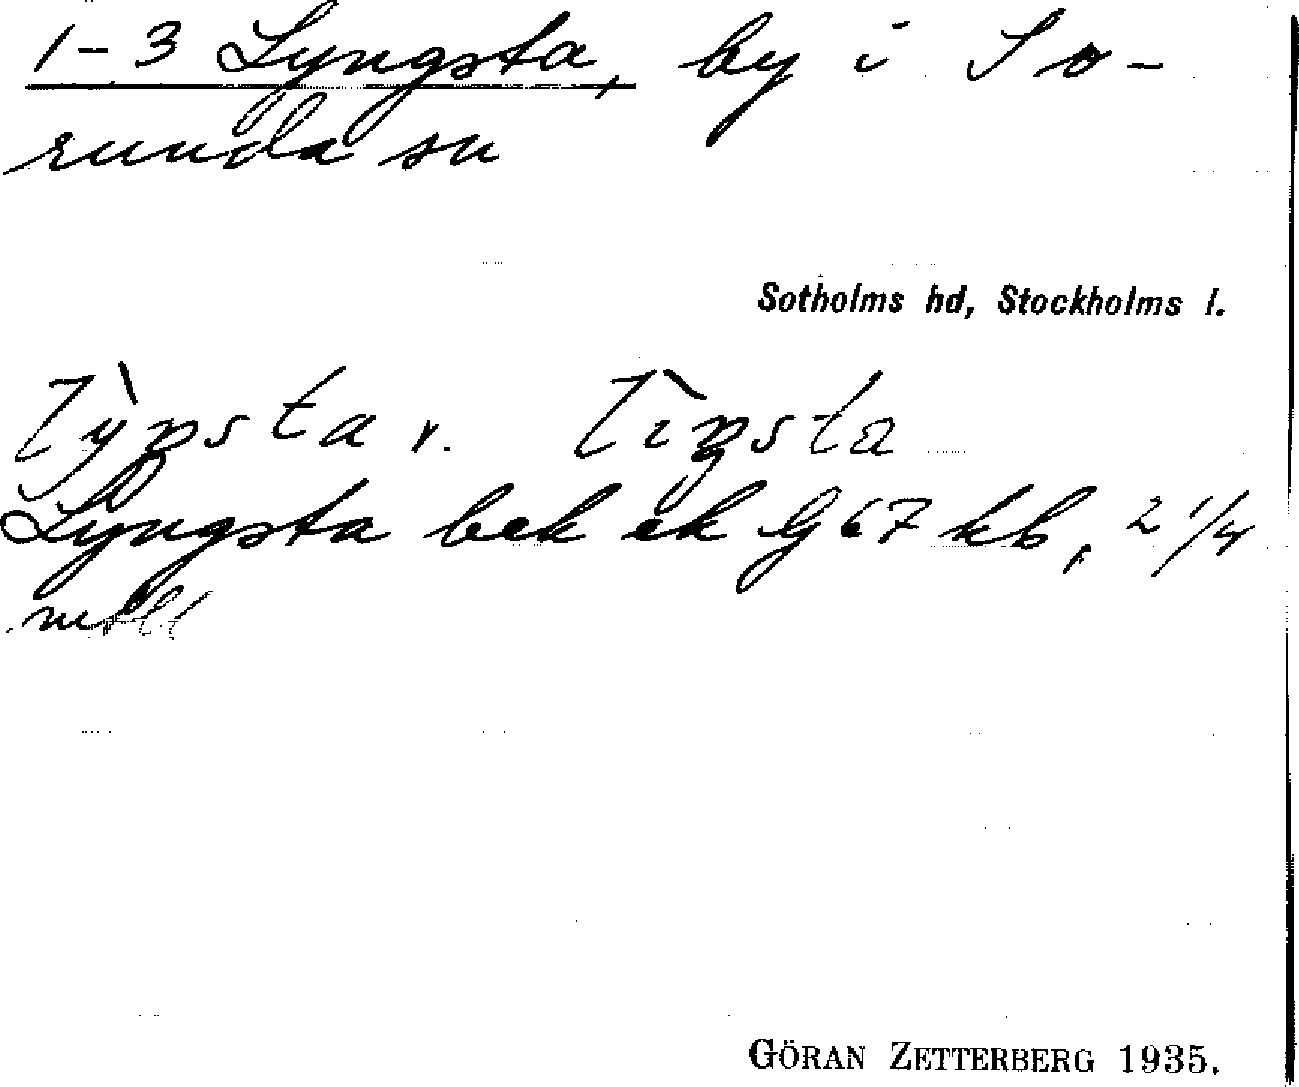 1-3 Lyngsta, by i So-
runda sn
Sotholms hd, Stockholms l.
Lyngsta bek ek G 67 kb, 2 1/4
mtl
GÖRAN ZETTERBERG 1935.